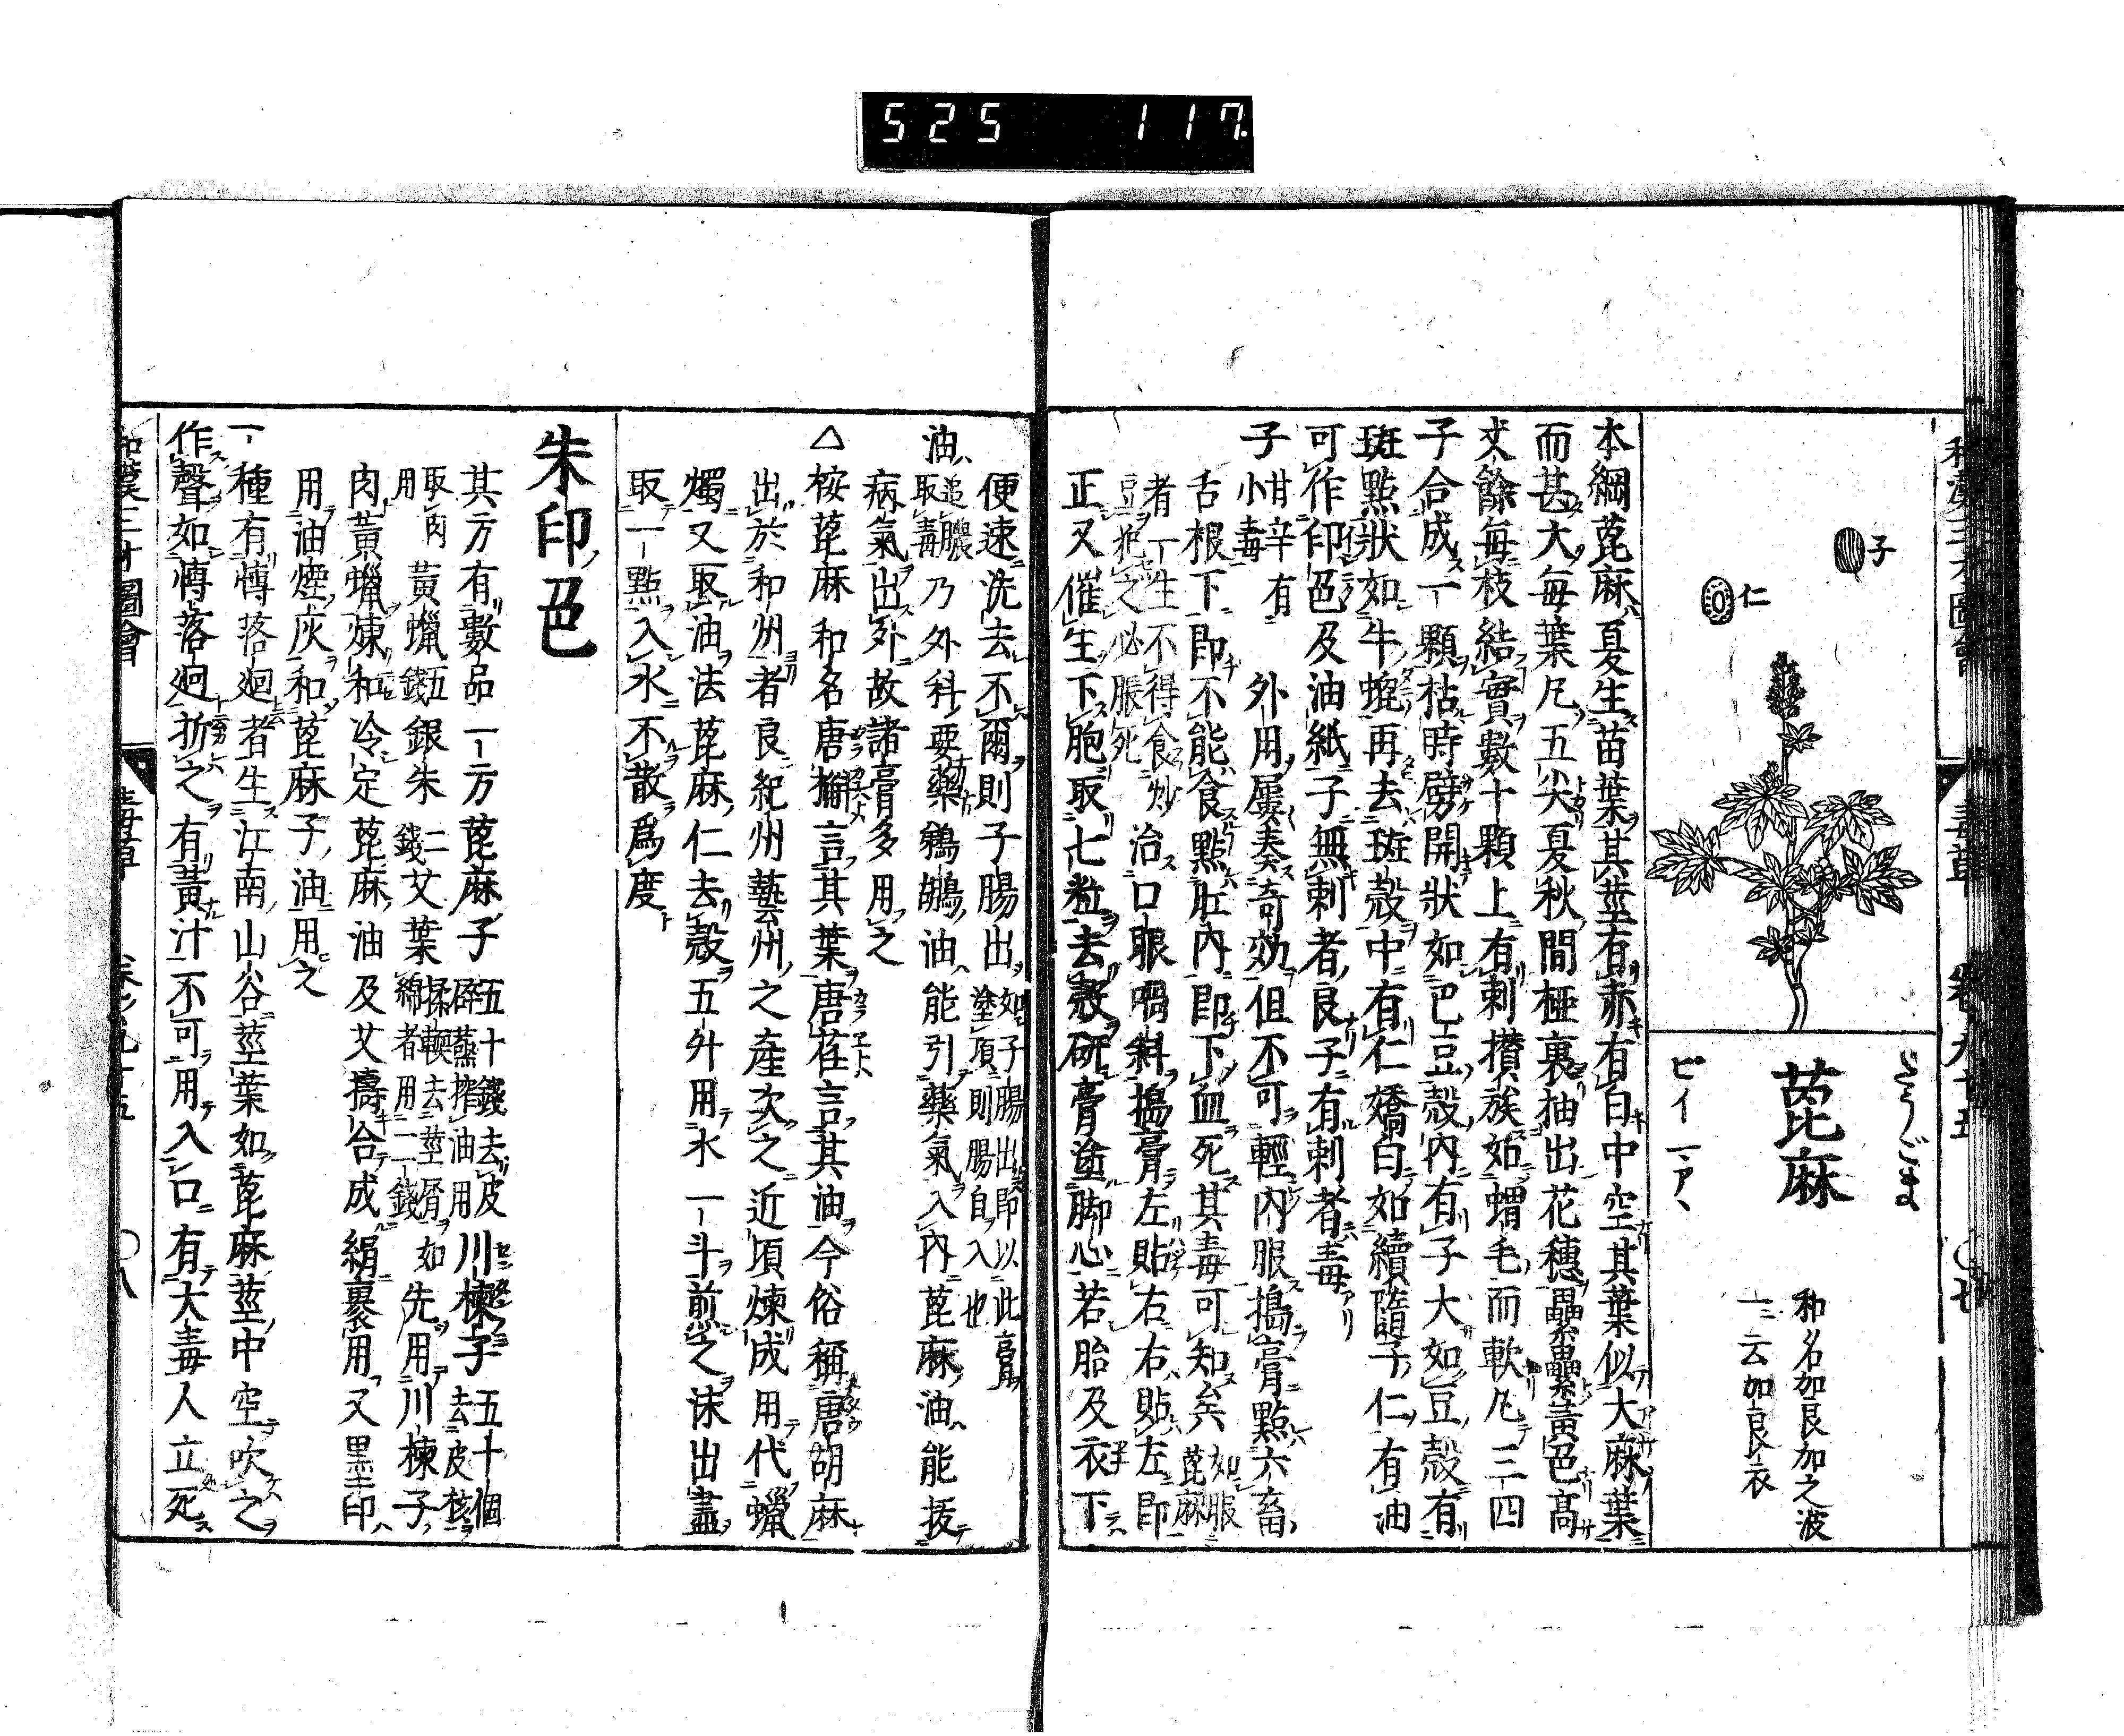 525 117
和漢三才圖會 毒草 卷ノ九十五 〇廿
子
仁
たうごま
蓖麻
ピイ マア
和名加良加之波
一云加良衣
本綱蓖麻夏生苗葉其莖有赤有白中空其葉似大麻葉
而甚大每葉凡五尖夏秋間椏裏抽出花穗纍纍黃色高
丈餘每枝結實數十顆上有刺攅族如蝟毛而軟凡三四
子合成一顆枯時劈開狀如巴豆殼內有子大如豆殼有
斑點狀如牛螕再去斑殼中有仁嬌白如續隨子仁有油
可作印色及油紙子無刺者良子有刺者毒
子 甘辛有小毒 外用屢奏奇効但不可輕內服搗膏點六畜
舌根下即不能食點肛內即下血死其毒可知矣 如服蓖麻
者一生不得食炒豆犯之必脹死 治口眼喎斜搗膏左貼右右貼左即
正又催生下胞取七粒去殼研膏塗脚心若胎及衣下
便速洗去不爾則子腸出 如子腸出即以此膏塗頂則腸自入也
油 追膿取毒 乃外科要藥鵜鶘油能引藥氣入內蓖麻油能拔
病氣出外故諸膏多用之
△按蓖麻和名唐獬言其葉唐荏言其油今俗稱唐胡麻
出於和州者良紀州藝州之產次之近頃煉成用代蠟
燭又取油法蓖麻仁去殼五升用水一斗煎之沫出盡
取一點入水不散爲度
朱印色
其方有數品一方蓖麻子 五十錢去皮研蒸搾油用 川楝子 五十個去皮核
取肉用 黃蠟 五錢 銀朱 二錢 艾葉 揉軟去莖屑綿者用二錢 如先用川楝子
肉黃蠟煉和冷定蓖麻油及艾擣合成絹裹用又墨印
用油煙灰和蓖麻子油用之
一種有慱落廻者生江南山谷莖葉如蓖麻莖中空吹之
作聲如慱落廻折之有黃汁不可用入口有大毒人立死
和漢三才圖會 毒草 卷ノ九十五 〇八